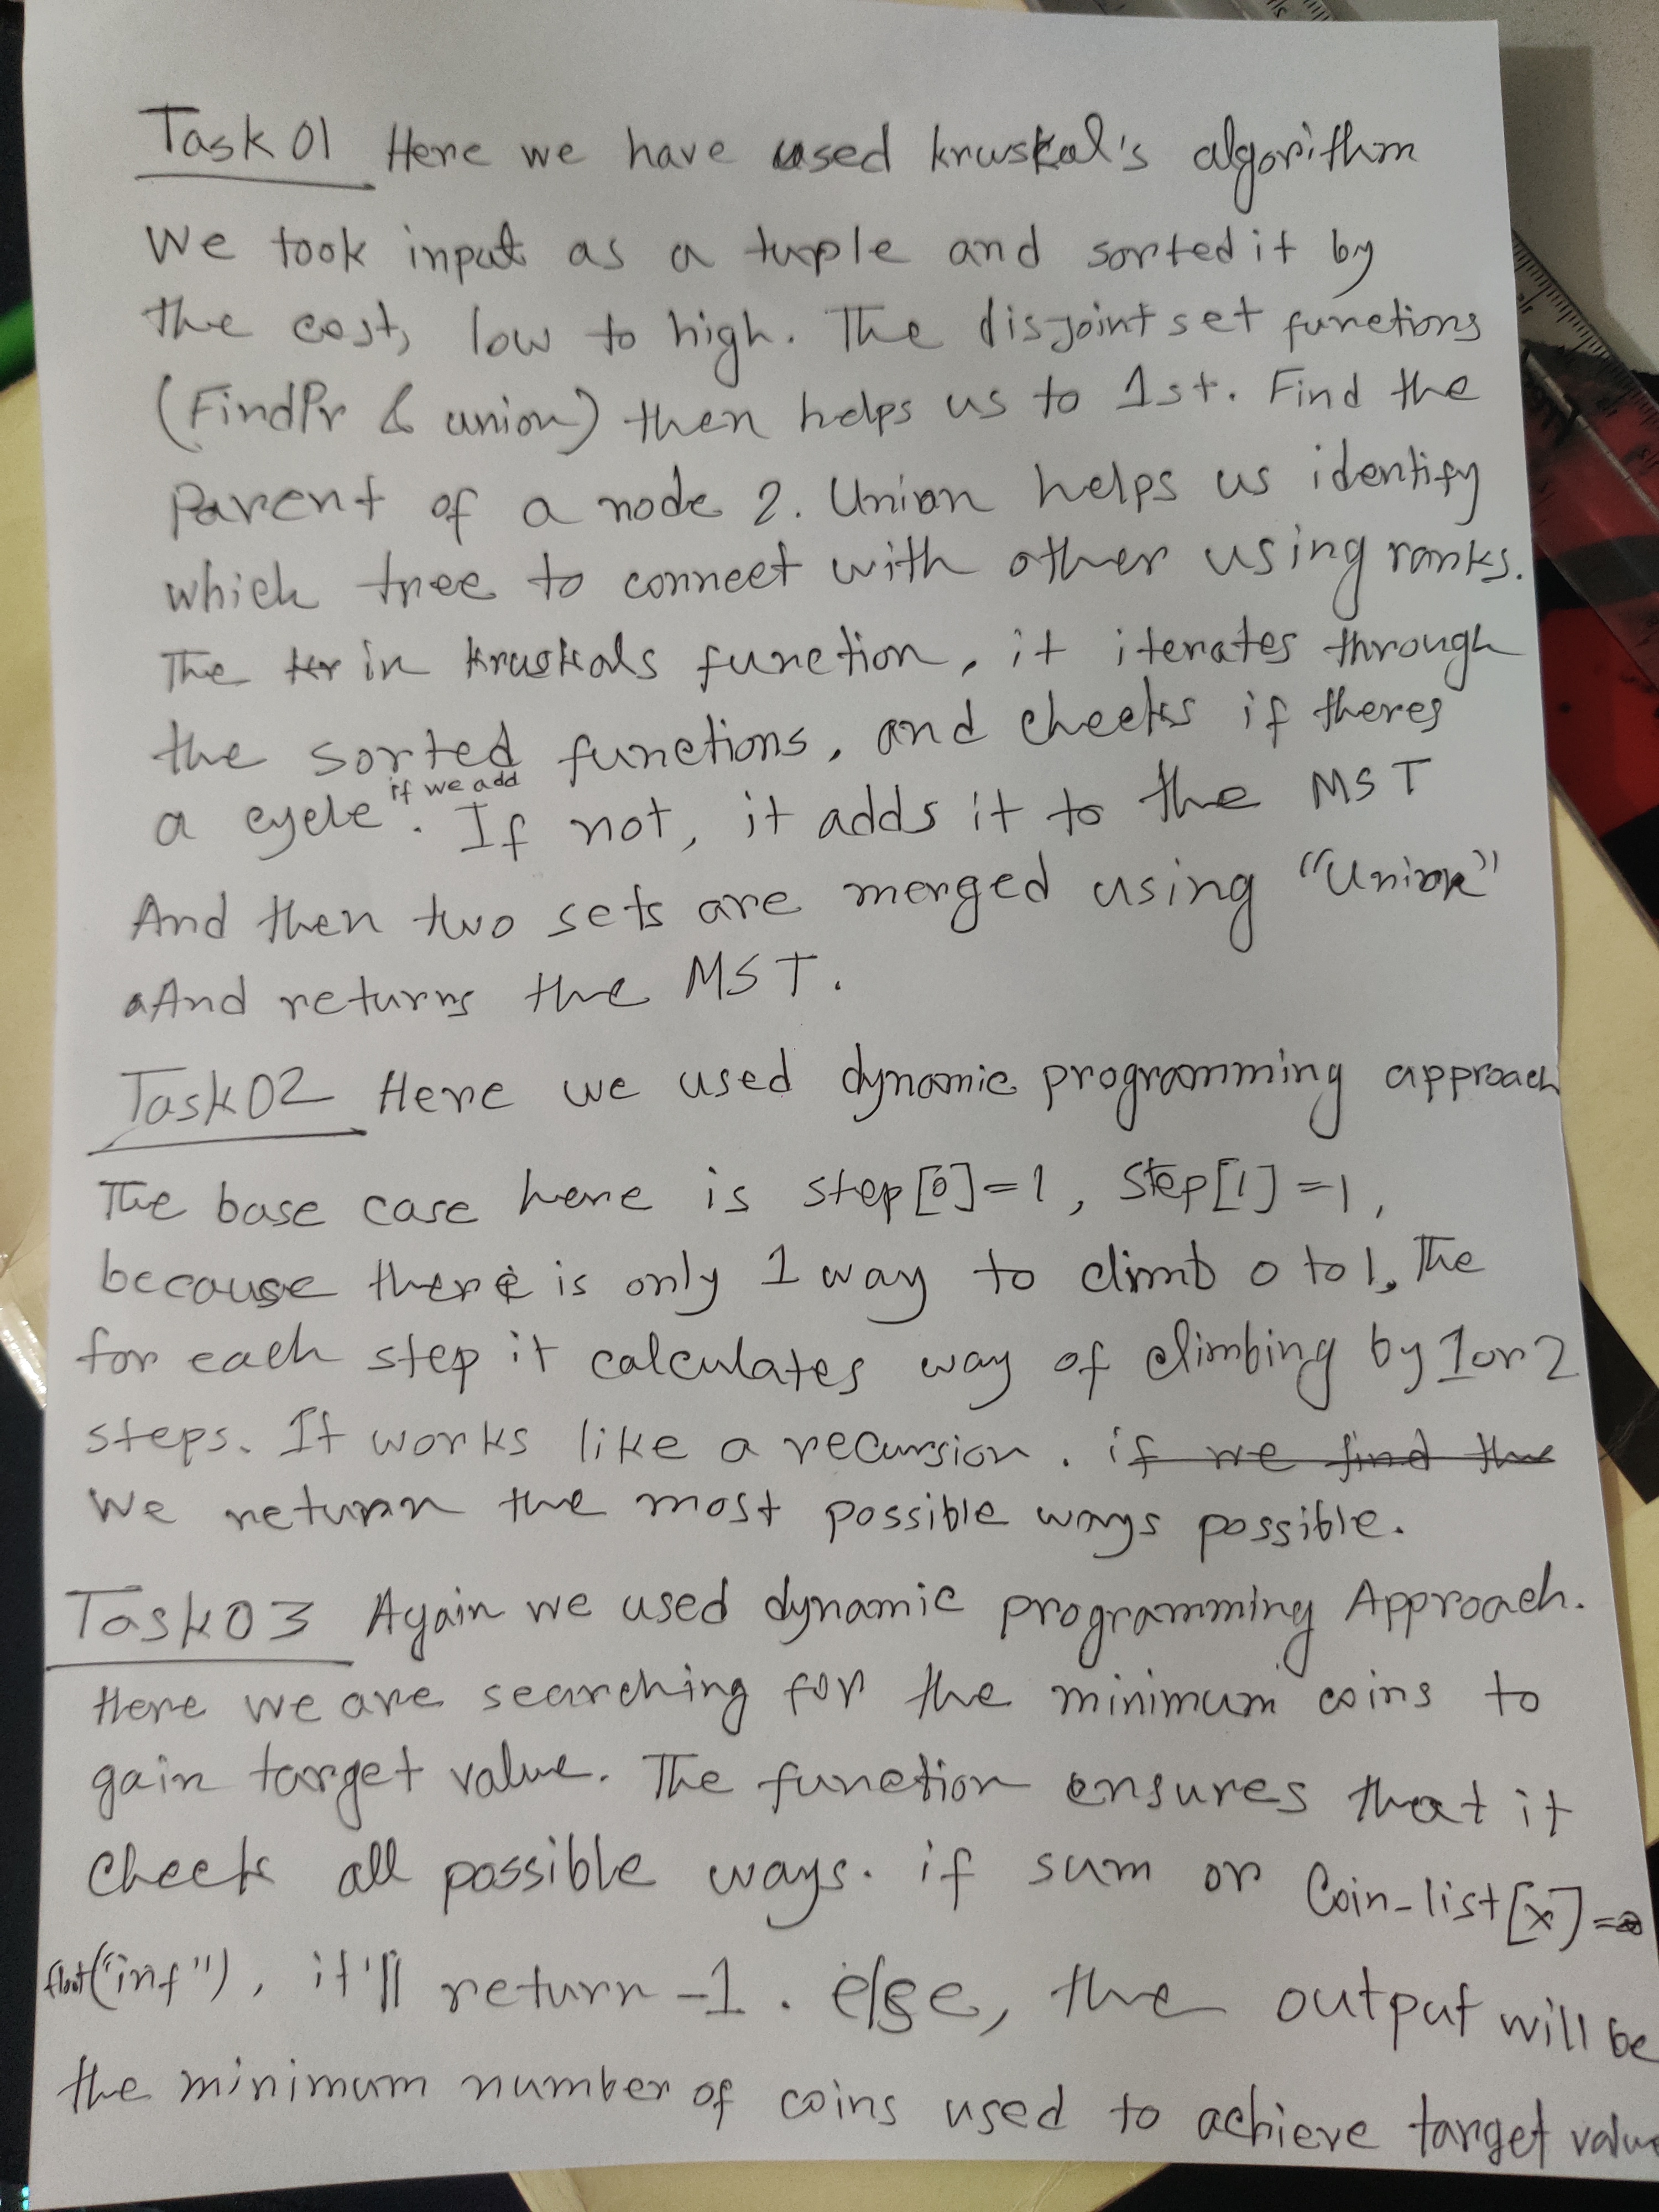 Task 01 Here we have used kruskal's algorithm
We took input as a tuple and sorted it by
the cost, low to high. The disjoint set functions
(FindPr & union) then helps us to 1st. Find the
Parent of a node 2. Union helps us identify
which tree to connect with other using ranks.
The in kruskals function, it iterates through
the sorted functions, and checks if theres
if we add
a cycle. If not, it adds it to the MST
And then two sets are merged using "Union"
And returns the MST.
Task 02 Here we used dynamic programming approach
The base case here is step[0]=1, Step[1]=1,
because there is only 1 way to climb 0 to 1, The
for each step it calculates way of climbing by 1 or 2
steps. It works like a recursion. if we find the
We return the most possible ways possible.
Task 03 Again we used dynamic programming Approach.
Here we are searching for the minimum coins to
gain target value. The function ensures that it
checks all possible ways. if sum or Coin-list[x]=
float("inf"), it'll return -1. else, the output will be
the minimum number of coins used to achieve target value